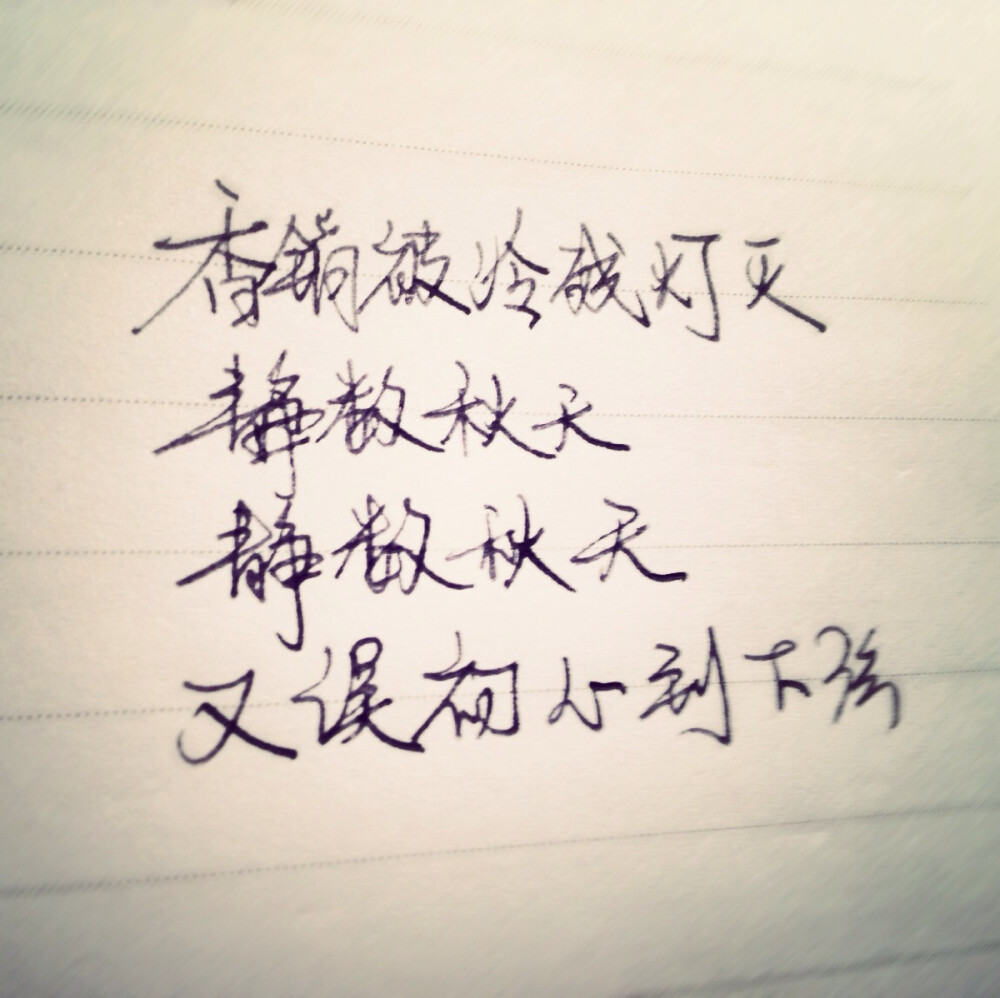 香销被冷残灯灭
静数秋天
静数秋天
又误初心到下弦